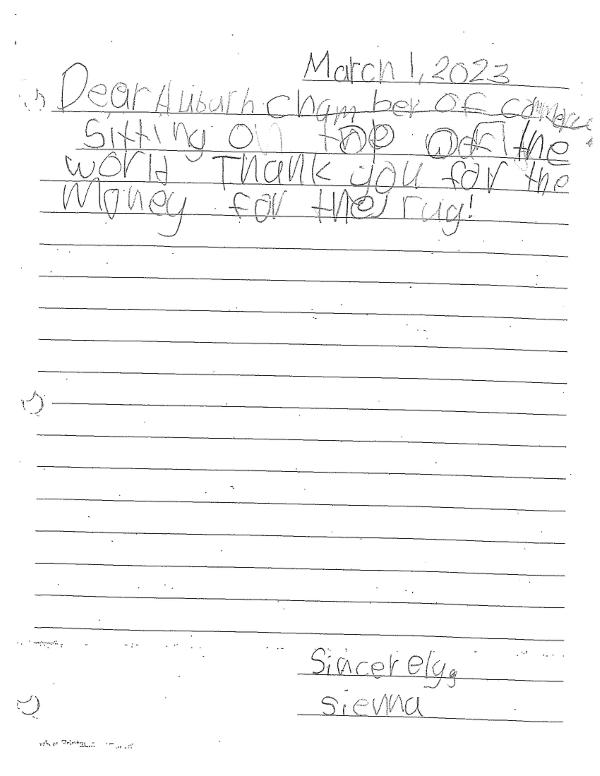 March 1, 2023
Dear Auburn Chamber of commerce
Sitting on top of the
world Thank you for the
Money for the rug!
Sincerely,
sienna